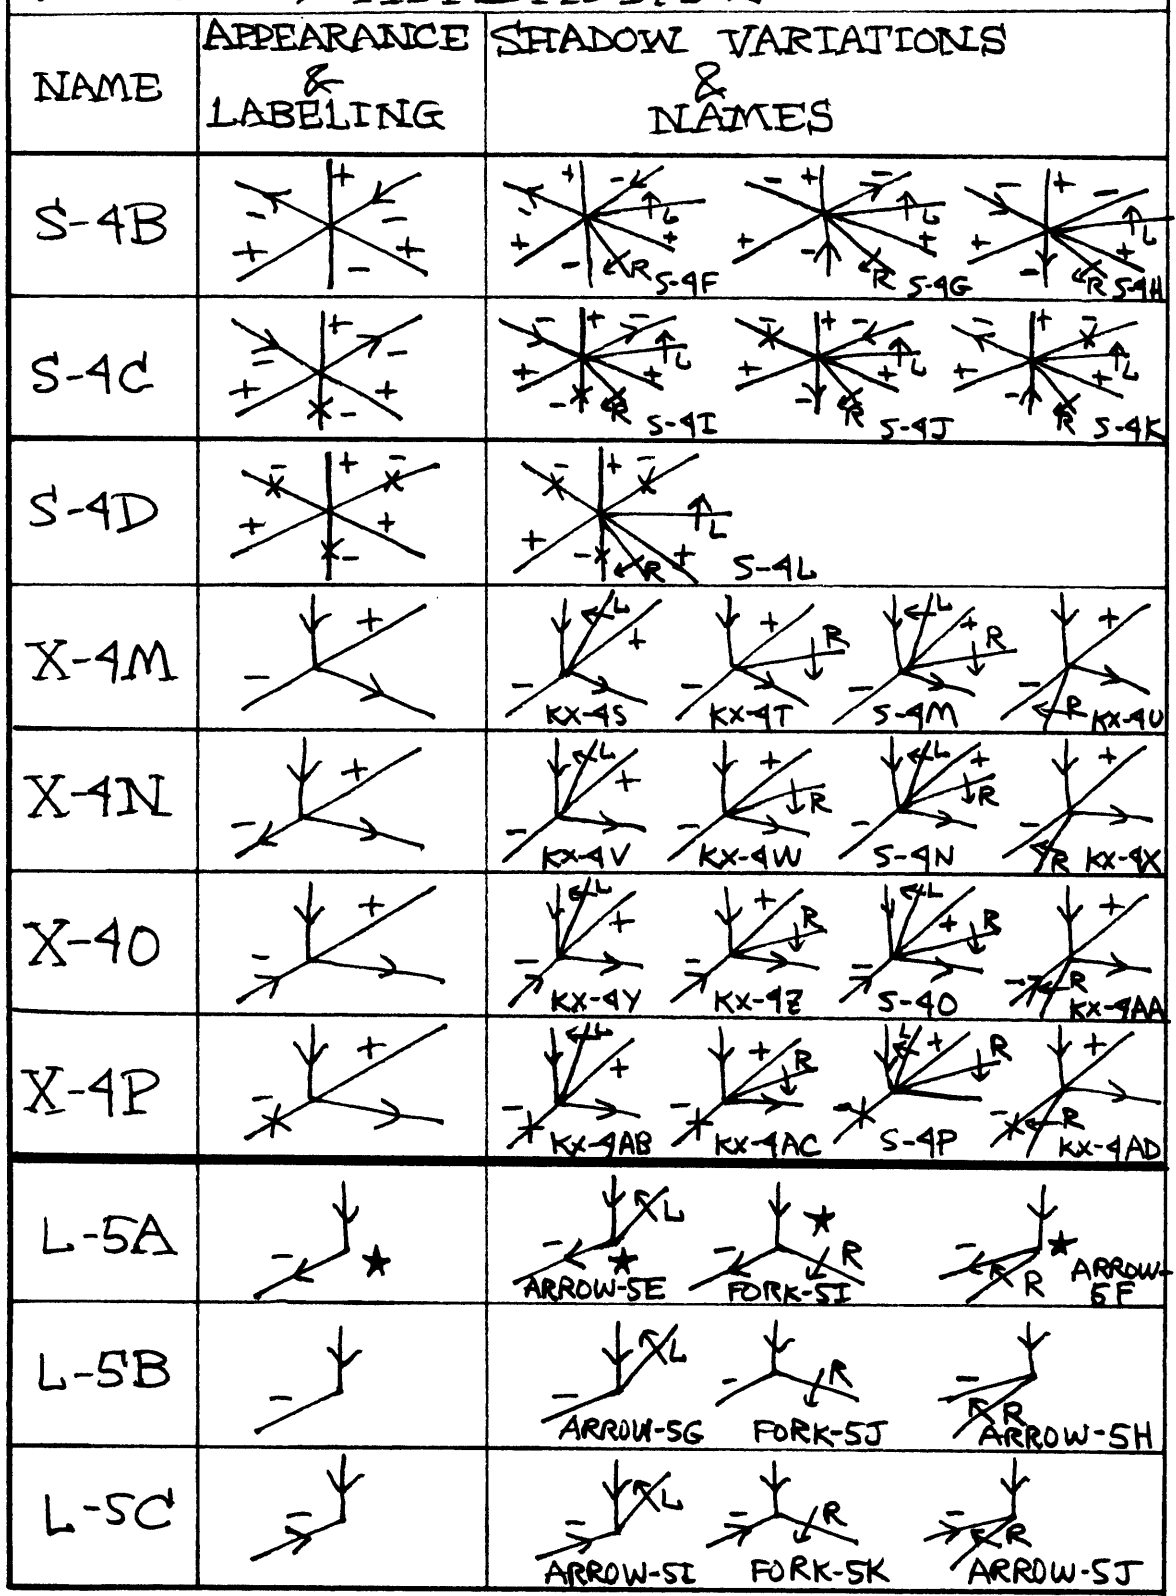 NAME
APPEARANCE
&
LABELING
SHADOW VARIATIONS
&
NAMES
S-4B
+ - - + + -
+ - - + + - L R S-4F
+ - - + + - L R S-4G
+ - - + + - L R S-4H
S-4C
+ - - + + -
+ - - + + - L R S-4I
+ - - + + - L R S-4J
+ - - + + - L R S-4K
S-4D
+ - - + + -
+ - - + + - L R S-4L
X-4M
+ -
L + - KX-4S
+ R - KX-4T
L + R - S-4M
+ - R KX-4U
X-4N
+ -
L + - KX-4V
+ R - KX-4W
L + R - S-4N
+ - R KX-4X
X-4O
+ -
L + - KX-4Y
+ R - KX-4Z
L + R - S-4O
+ - R KX-4AA
X-4P
+ -
L + - KX-4AB
+ R - KX-4AC
L + R - S-4P
+ - R KX-4AD
L-5A
- ★
L - ★ ARROW-5E
★ - R FORK-5I
- ★ R ARROW-
5F
L-5B
-
L - ARROW-5G
- R FORK-5J
- R ARROW-5H
L-5C
-
L - ARROW-5I
- R FORK-5K
- R ARROW-5J